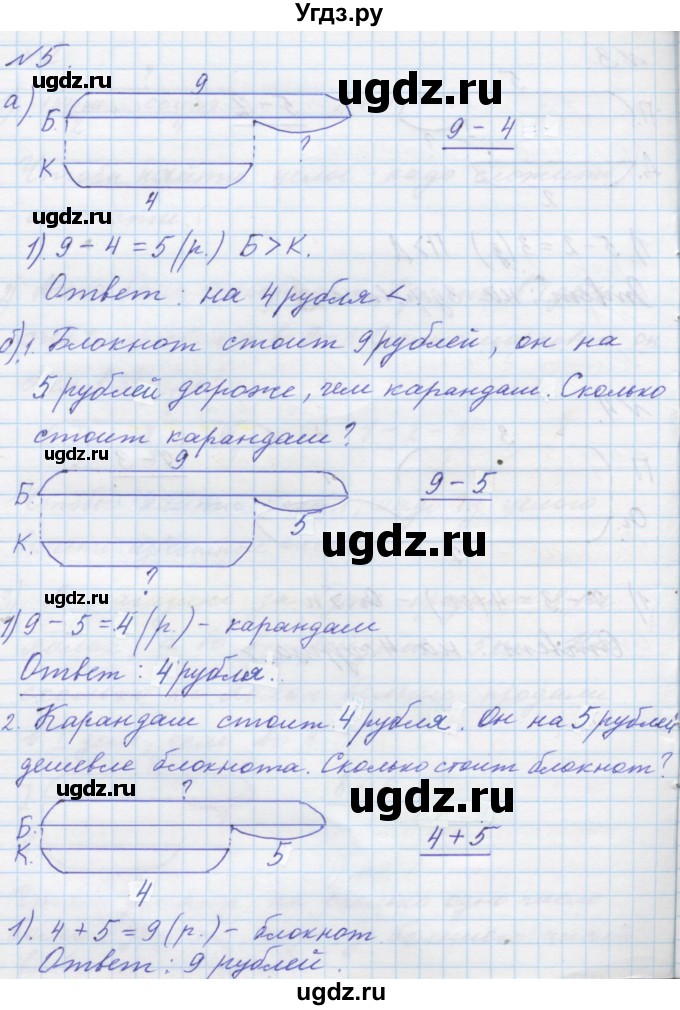 Угдз.ру
№5.
ugdz.ru
ugdz.ru
9
а)
Б.
?
9 - 4
К
4
ugdz.ru
1). 9 - 4 = 5 (р.) Б > К.
ugdz.ru
Ответ: на 4 рубля <
ugdz.ru
б). 1. Блокнот стоит 9 рублей, он на
5 рублей дороже, чем карандаш. Сколько
стоит карандаш?
ugdz.ru
9
Б.
9 - 5
5
ugdz.ru
ugdz.ru
К.
?
ugdz.ru
1) 9 - 5 = 4 (р.) - карандаш
Ответ: 4 рубля.
ugdz.ru
2. Карандаш стоит 4 рубля. Он на 5 рублей
дешевле блокнота. Сколько стоит блокнот?
ugdz.ru
?
ugdz.ru
Б.
4 + 5
К.
5
4
ugdz.ru
1). 4 + 5 = 9 (р.) - блокнот
Ответ: 9 рублей.
ugdz.ru